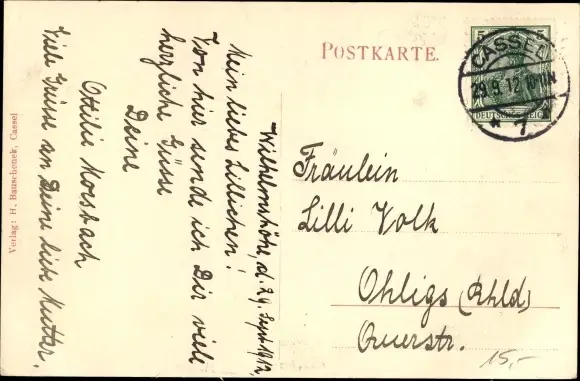 POSTKARTE.
CASSEL
29.9.12.
* 7
5 5
DEUTSCHES REICH
Wilhelmshöhe, d. 29. Sept. 1912.
Mein liebes Lillichen!
Von hier sende ich Dir viele
herzliche Grüsse
Deine
Ottilie Morsbach
Viele Grüsse an Deine liebe Mutter.
Fräulein
Lilli Volk
Ohligs (Rhld)
Querstr.
15,-
Verlag: H. Bauschonek, Cassel